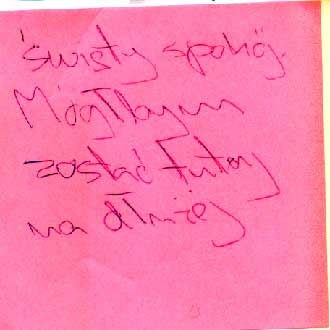 święty spokój.
Mógłbym
zostać tutaj
na dłużej